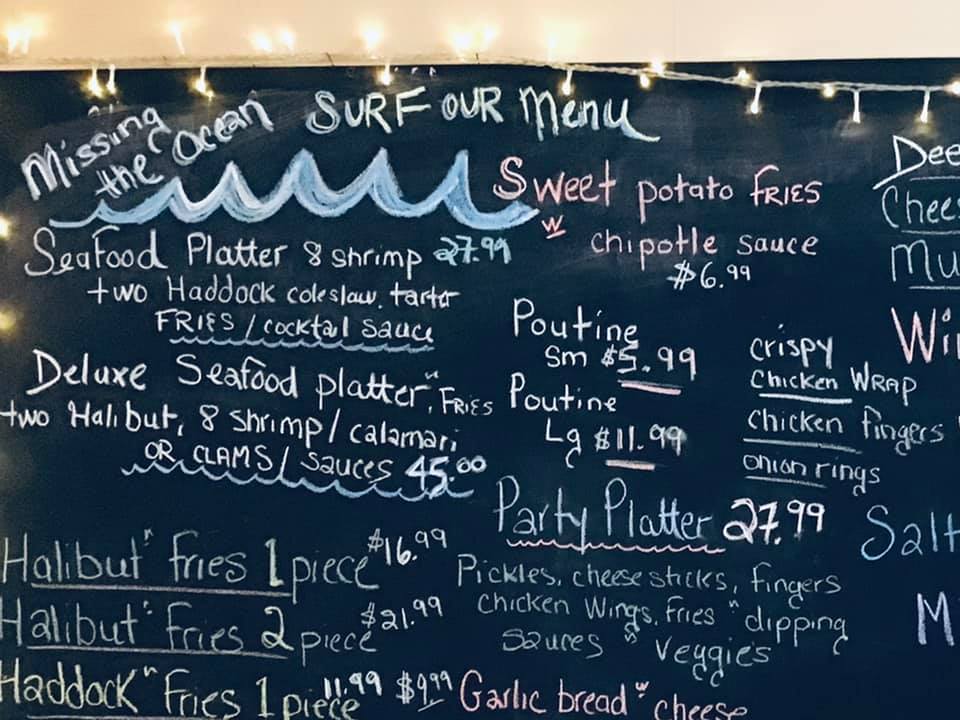 Missing
the Ocean
SURF OUR Menu
Seafood Platter 8 shrimp 27.99
two Haddock coleslaw. tartar
FRIES / cocktail sauce
Deluxe Seafood platter, FRIES
two Halibut, 8 shrimp / calamari
OR CLAMS / sauces 45.00
Halibut "n Fries 1 piece $16.99
Halibut "n Fries 2 piece $21.99
Haddock "n Fries 1 piece 11.99
Sweet potato FRIES
w chipotle sauce
$6.99
Poutine
Sm $5.99
Poutine
Lg $11.99
Party Platter 27.99
Pickles, cheese sticks, fingers
chicken wings, fries "n dipping
sauces "n veggies
$9.99 Garlic bread "w cheese
crispy
chicken WRAP
chicken fingers
onion rings
Dee
Chee
Mu
Wi
Salt
M